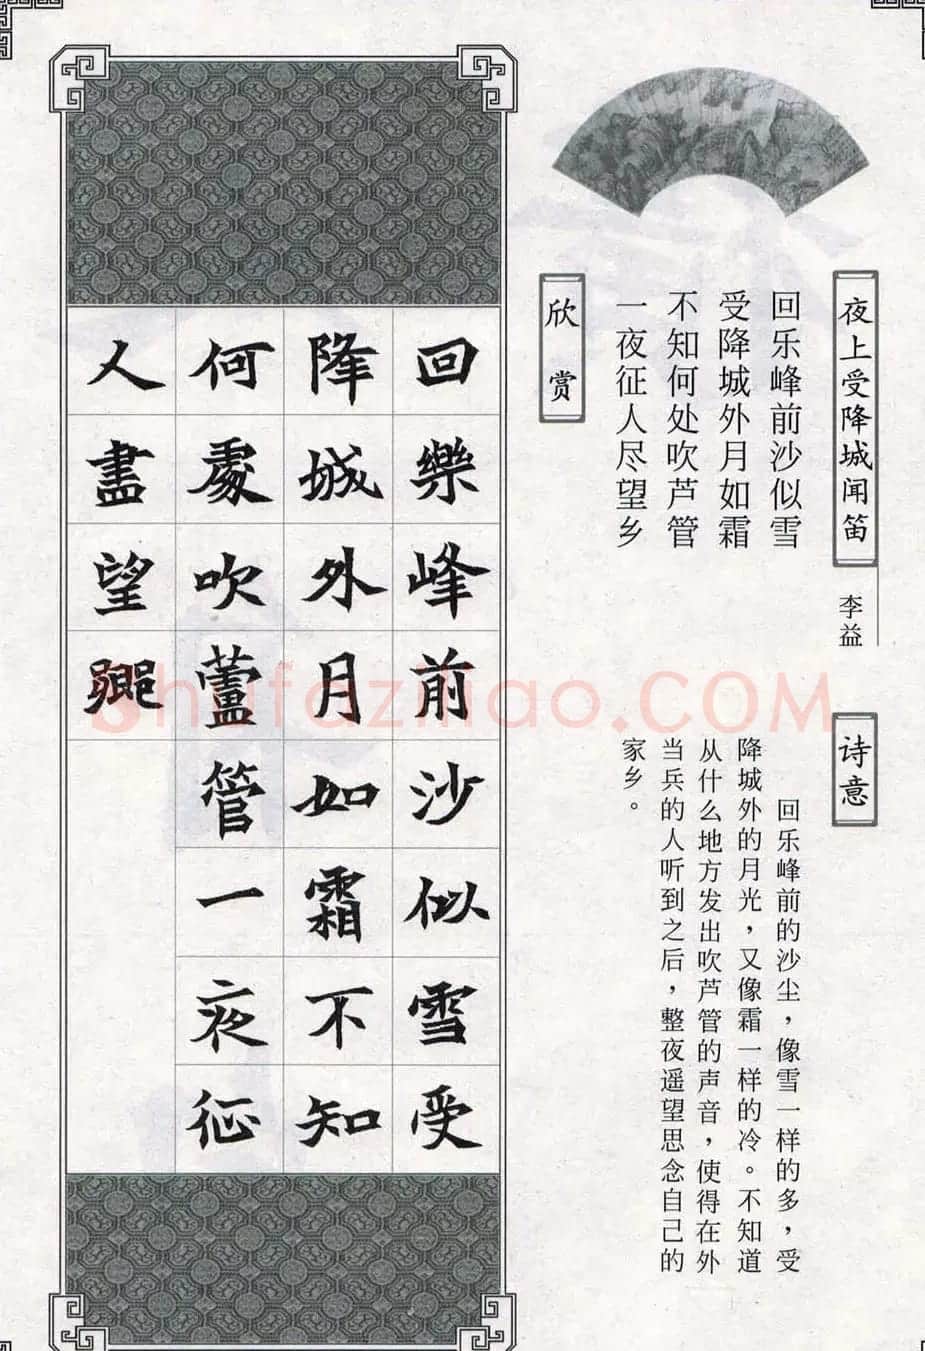 夜上受降城闻笛
李益
回乐峰前沙似雪
受降城外月如霜
不知何处吹芦管
一夜征人尽望乡
欣赏
诗意
回乐峰前的沙尘，像雪一样的多，受
降城外的月光，又像霜一样的冷。不知道
从什么地方发出吹芦管的声音，使得在外
当兵的人听到之后，整夜遥望思念自己的
家乡。
回樂峰前沙似雪受
降城外月如霜不知
何處吹蘆管一夜征
人盡望鄉
shufaziliao.COM